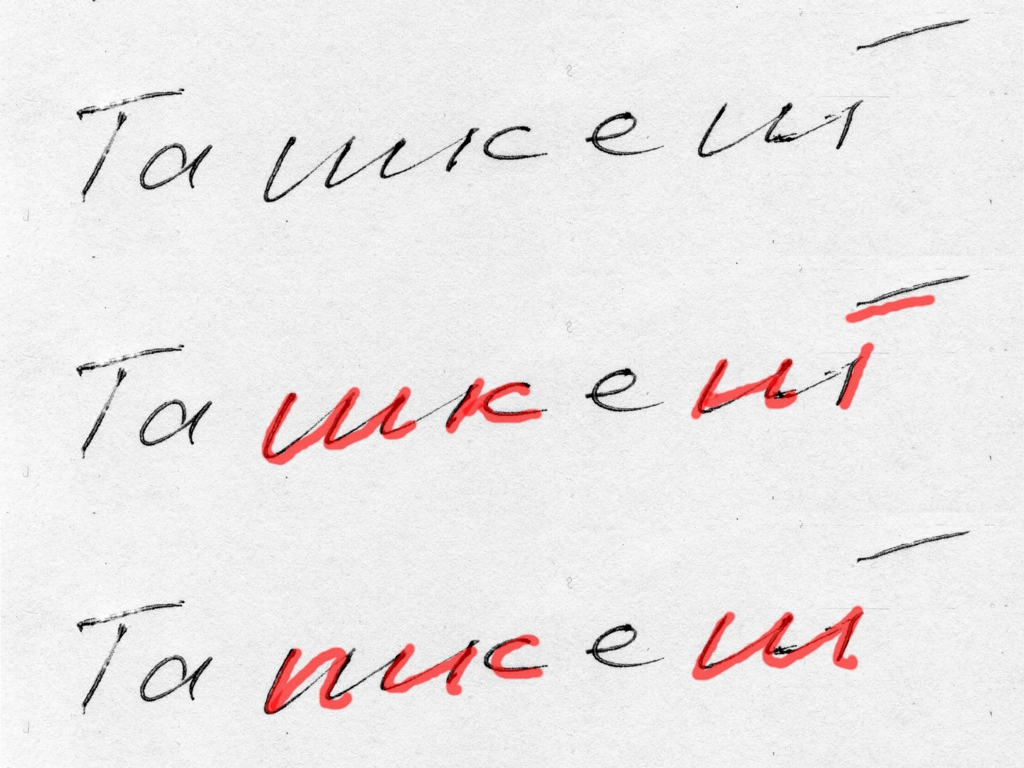 Ташкент
Ташкент
Ташкент